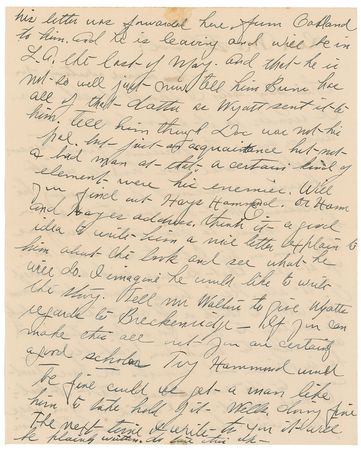 his letter was forwarded here from Oakland
to him. And he is leaving and will be in
L.A. the last of May. and that he is
not so well just now, tell him Burns has
all of that data as Wyatt sent it to
him. tell him though Doc was not his
pal. but just an acquaintance but not
a bad man at that. a certain kind of
element were his enemies. Will
you find out Hays Hammond. or Ham
and Hayes address, think it a good
idea to write him a nice letter explain to
him about the book and see what he
will do. I imagine he would like to write
the story. Tell Mr Walter to give Wyatts
regards to Breckenridge — If you can
make this all out you are certainly
a good scholar Try Hammond would
be fine could we get a man like
him to take hold of it. Well
The next time I write to you it will
be plainly written.